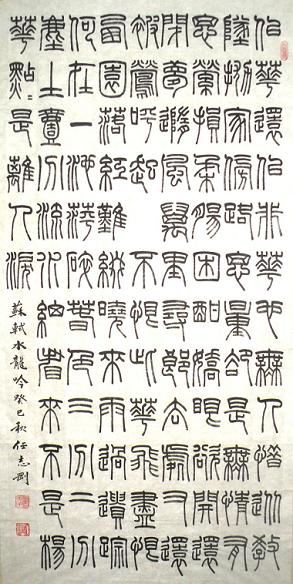 似華還似非華也無人惜從教
墜拋家傍路思量卻是無情有
思縈損柔腸困酣嬌眼欲開還
閉夢隨風萬里尋郎去處又還
被鶯呼起 不恨此華飛盡恨
西園落紅難綴曉來雨過遺蹤
何在一池萍碎春色三分二分
塵土壹分流水細看來不是楊
華點點是離人淚
蘇軾水龍吟癸巳秋任志剛